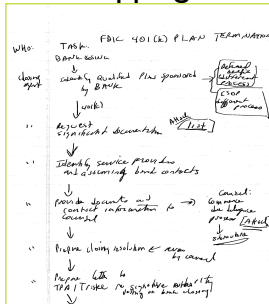 FDIC 401(k) PLAN TERMINATION
WHO: TASK:
BANK
closing agent
Identify Qualified Plans sponsored
by BANK
Defined
Benefit
different
process
ESOP
different
process
" Request
significant documentation
Attach
list
" Identify service providers
and assuming bank contacts
" Provide documents and
contact information to
counsel
Counsel:
Commence
due diligence
process [Attach]
" Prepare closing resolution & review
by counsel
" Prepare letter to
TPA/Trustee re signature authority
on bank closing